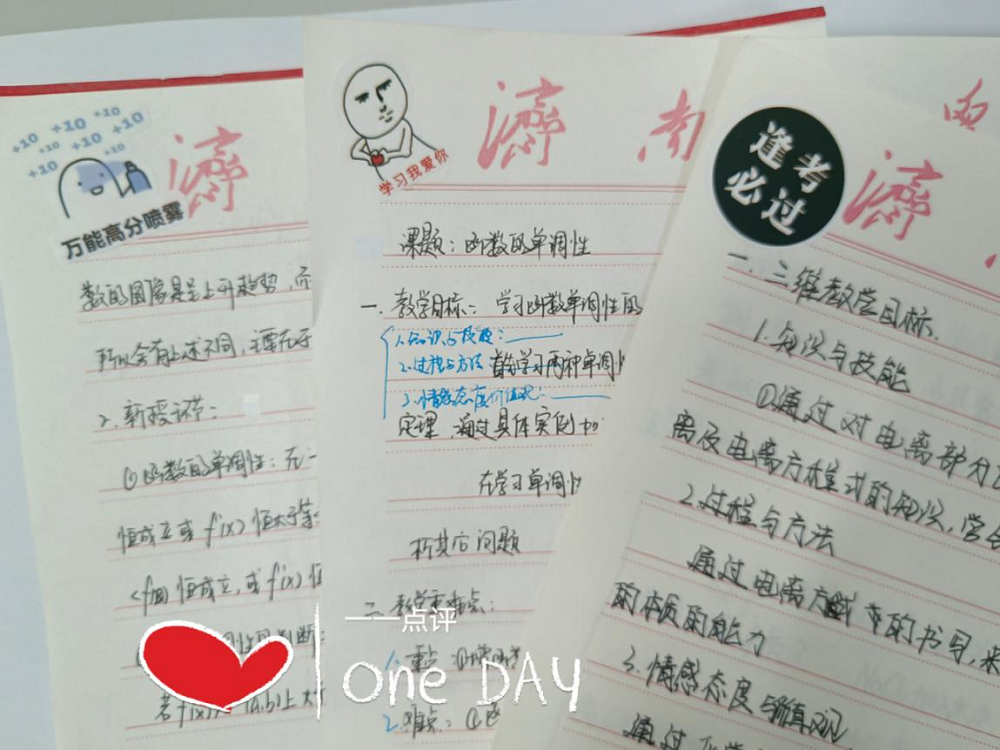 +10 +10 +10
+10 +10 +10
+10 +10
万能高分喷雾
濟
数的图像是呈上升趋势,而
所以会有上述不同,主要在于
2.新授课节:
①函数的单调性:在一
恒成立或f'(x)恒大于等
恒成立,或f'(x)恒
判断:
若f(x)在(a,b)上
学习我爱你
濟 南
课题:函数的单调性
一.教学目标:学习函数单调性的
1.知识与技能:
2.过程与方法 首先学习两种单调
3.情感态度价值观:
定理,通过具体实例
在学习单调性
析其后问题
二.教学重难点:
1.重点
2.难点:①
逢考
必过
濟
一.三维教学目标.
1.知识与技能
①通过对电离部分
离及电离方程式的知识,学会
2.过程与方法
通过电离方程式的书写,来
的本质的能力
3.情感态度与价值观
通过
——点评
one DAY